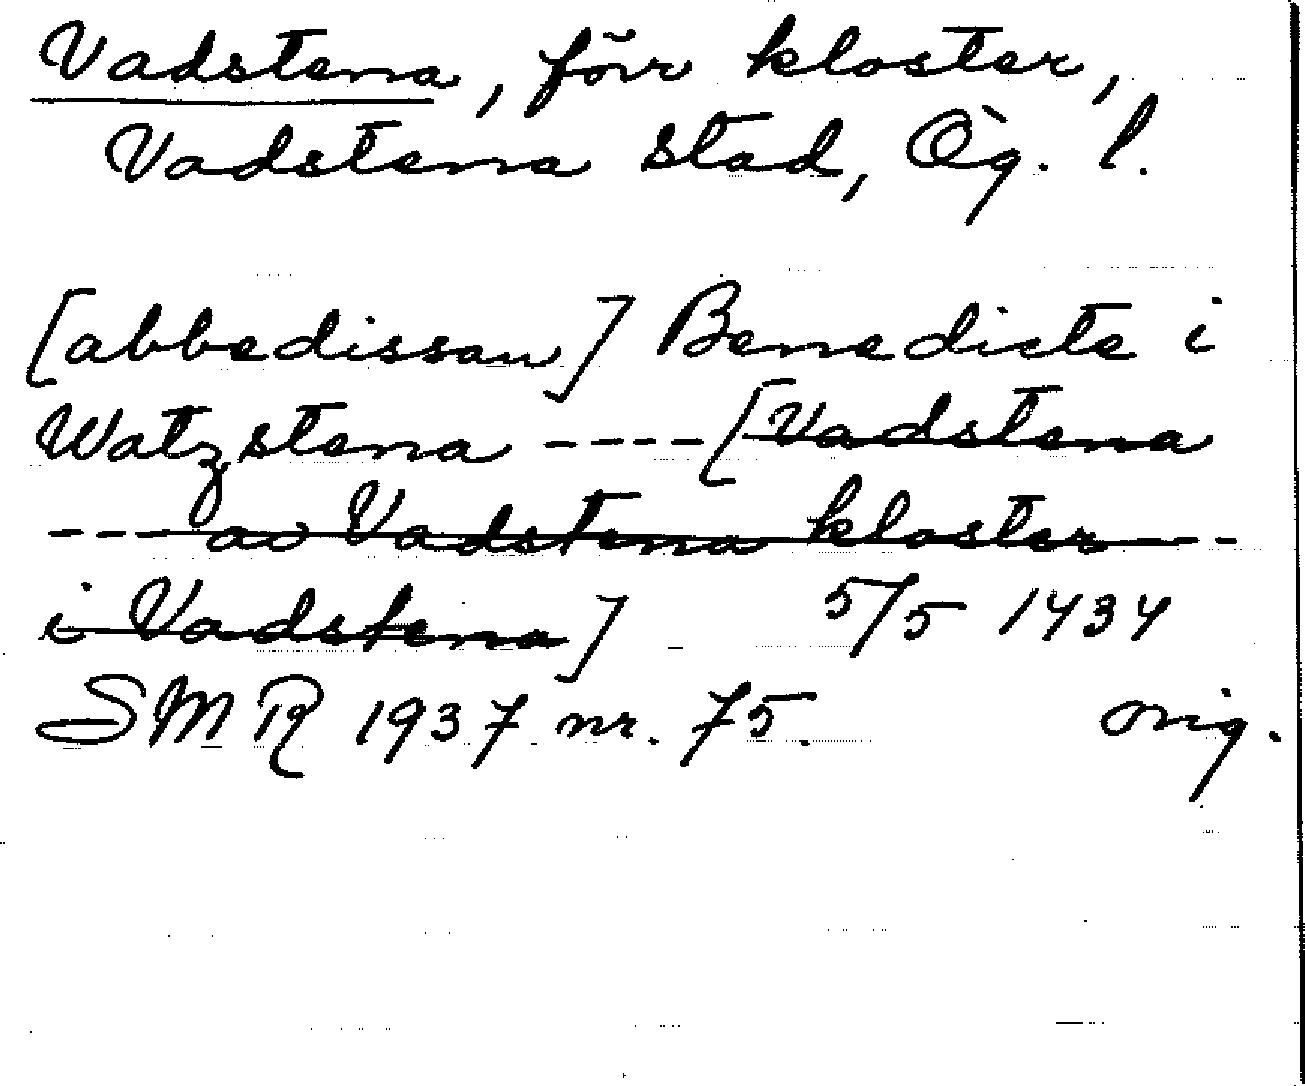 Vadstena, förr kloster,
Vadstena stad, Ög. l.
[abbedissan] Benedicte i
Watzstena ---- [Vadstena
--- av Vadstena kloster --
i Vadstena] 5/5 1434
SMR 1937 nr. 75. orig.